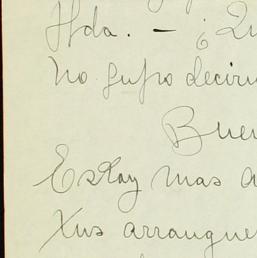 Hda. — ¿ Qu
no supo decirm
Buen
Estoy mas a
Xus arrangue